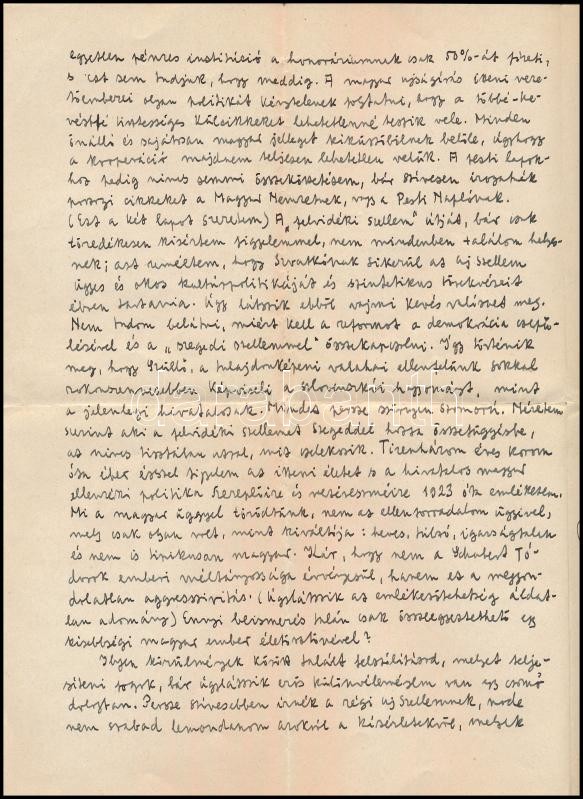 egyetlen pénzes institúció a honoráriumnak csak 50%-át fizeti,
s ezt sem tudjuk, hogy meddig. A magyar ujságirás itteni veze-
tőemberei olyan politikát kénytelenek folytatni, hogy a többé-ke-
vésbé tisztességes külcikkeket lehetetlenné teszik vele. Minden
önálló és sajátosan magyar jelleget kiküszöbölnek belőle, úgyhogy
a kooperáció majdnem teljesen lehetetlen velük. A pesti lapok-
hoz pedig nincs semmi összeköttetésem, bár szivesen irogatnék
pozsonyi cikkeket a Magyar Nemzetnek, vagy a Pesti Naplónak.
(Ezt a két lapot szeretem) A „felvidéki szellem" útját, bár csak
töredékesen kisértem figyelemmel, nem mindenben találom helyes-
nek; azt reméltem, hogy Szvatkónak sikerül az új szellem
ügyes és okos kultúrpolitikáját és szintetikus törekvéseit
ébren tartania. Úgy látszik ebből vajmi kevés valósul meg.
Nem tudom belátni, miért kell a reformot a demokrácia csepü-
lésével és a „szegedi szellemmel" összekapcsolni. Igy történik
meg, hogy Szüllő, a tulajdonképeni valahai ellenfelünk sokkal
rokonszenvesebben képviseli a szlovenszkói hagyományt, mint
a jelenlegi hivatalosak. Mindez persze szörnyen szomorú. Nézetem
szerint aki a felvidéki szellemet Szegeddel hozza összefüggésbe,
az nincs tisztában azzal, mit cselekszik. Tizenhárom éves korom
óta éber ésszel figyelem az itteni életet s a hivatalos magyar
ellenzéki politika szereplőire és vezéreszméire 1923 óta emlékezem.
Mi a magyar üggyel törődtünk, nem az ellenforradalom ügyeivel,
mely csak olyan volt, mint kiváltója: heves, túlzó, igazságtalan
és nem is tipikusan magyar. Kár, hogy nem a Schubert Tó-
dorok emberi méltányossága érvényesül, hanem ez a meggon-
dolatlan aggresszivitás. (Úgylátszik az emlékezőtehetség áldat-
lan adomány) Ennyi beismerés talán csak összeegyeztethető egy
kisebbségi magyar ember életösztönével?
Ilyen körülmények között talált felszólitásod, melyet telje-
siteni fogok, bár úgylátszik erős különvéleményem van egy csomó
dologban. Persze szivesebben irnék a régi uj szellemnek, node
nem szabad lemondanom azokról a kisérletekről, melyek